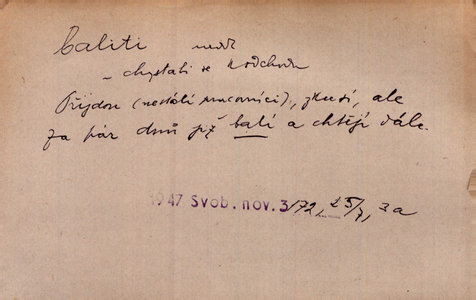 baliti ned.
– chystati se k odchodu
Přijdou (nestálí pracovníci), zkusí, ale
za pár dnů již balí a chtějí dále.
1947 Svob. nov. 3/172, 25/7, 3a